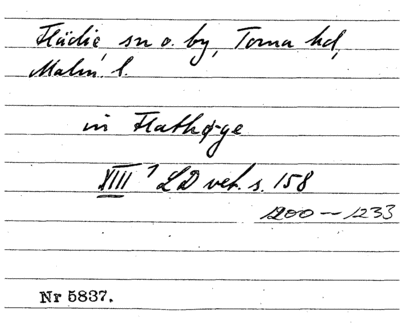 Flädie, sn o. by, Torna hd,
Malm. l.
in Flathøge
XIII 1 LD vet. s. 158
1200—1233
Nr 5837.